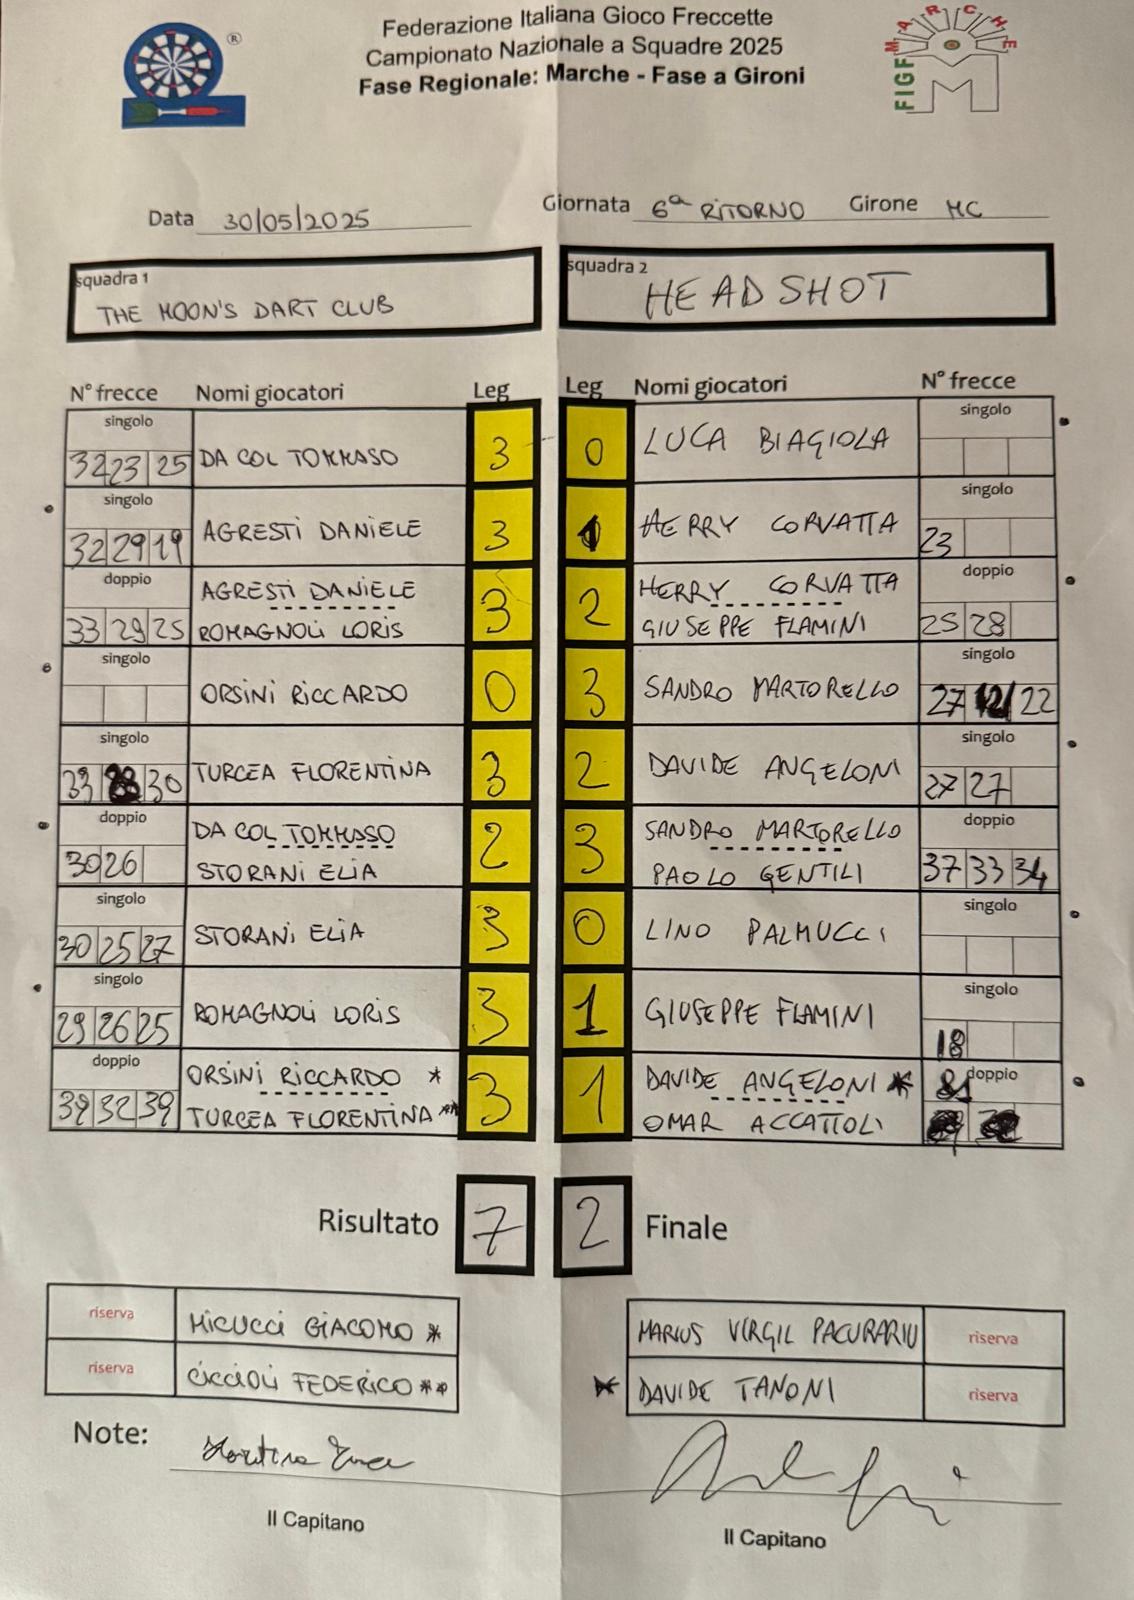 Federazione Italiana Gioco Freccette
Campionato Nazionale a Squadre 2025
Fase Regionale: Marche - Fase a Gironi
®
FIGF MARCHE
M
Data 30/05/2025
Giornata 6ª RITORNO Girone MC
squadra 1
THE MOON'S DART CLUB
squadra 2
HEAD SHOT
N° frecce Nomi giocatori Leg Leg Nomi giocatori N° frecce
singolo singolo
32 23 25 DA COL TOMMASO 3 0 LUCA BIAGIOLA
singolo singolo
32 29 19 AGRESTI DANIELE 3 1 HERRY CORVATTA 23
doppio doppio
AGRESTI DANIELE 3 2 HERRY CORVATTA
33 29 25 ROMAGNOLI LORIS GIUSEPPE FLAMINI 25 28
singolo singolo
ORSINI RICCARDO 0 3 SANDRO MARTORELLO 27 22
singolo singolo
33 30 TURCEA FLORENTINA 3 2 DAVIDE ANGELONI 27 27
doppio doppio
DA COL TOMMASO 2 3 SANDRO MARTORELLO
30 26 STORANI ELIA PAOLO GENTILI 37 33 34
singolo singolo
30 25 27 STORANI ELIA 3 0 LINO PALMUCCI
singolo singolo
29 26 25 ROMAGNOLI LORIS 3 1 GIUSEPPE FLAMINI 18
doppio doppio
ORSINI RICCARDO * 3 1 DAVIDE ANGELONI *
39 32 39 TURCEA FLORENTINA ** OMAR ACCATTOLI
Risultato 7 2 Finale
riserva MICUCCI GIACOMO * MARIUS VIRGIL PACURARIU riserva
riserva CICCIOLI FEDERICO ** * DAVIDE TANONI riserva
Note:
Il Capitano
Il Capitano